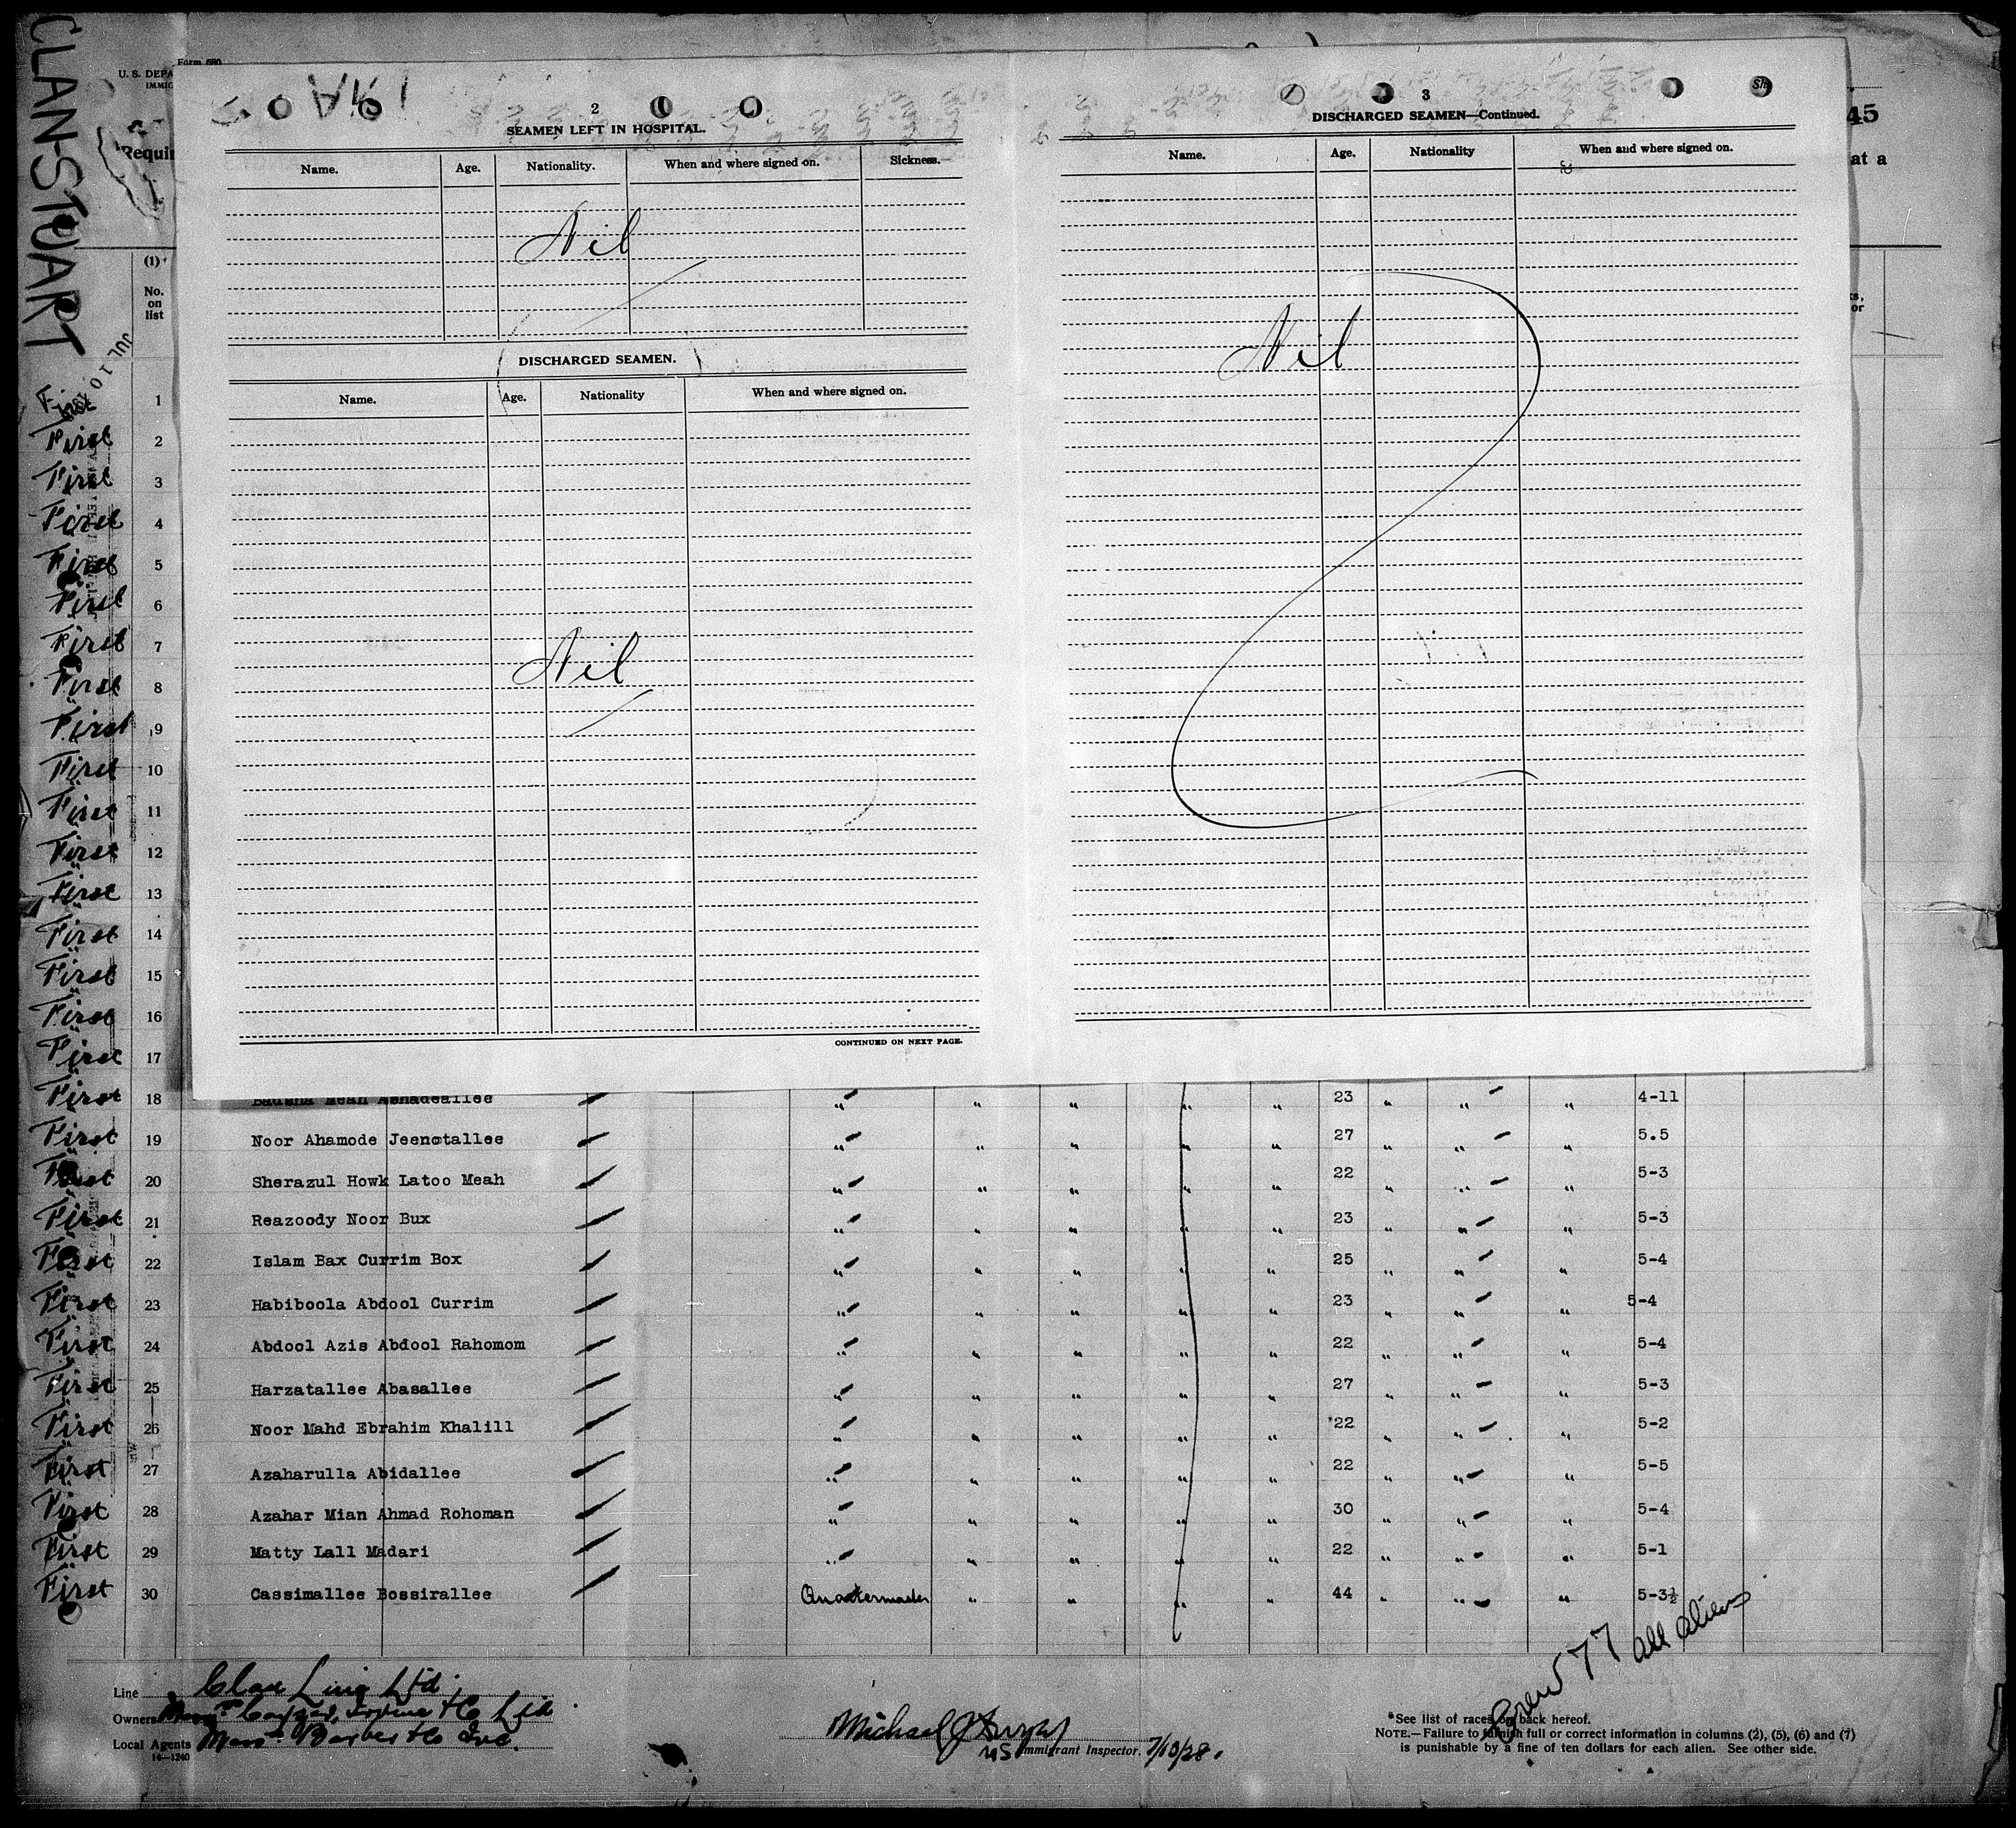 CLAN-STUART
JUL 10
Form 680
U. S. DEPA
IMMIG
Requir
45
at a
(1)
No.
on
list
2
SEAMEN LEFT IN HOSPITAL.
Name. Age. Nationality. When and where signed on. Sickness.
Nil
DISCHARGED SEAMEN.
Name. Age. Nationality When and where signed on.
Nil
CONTINUED ON NEXT PAGE.
3
DISCHARGED SEAMEN—Continued.
Name. Age. Nationality When and where signed on.
Nil
First 1
First 2
First 3
First 4
First 5
First 6
First 7
First 8
First 9
First 10
First 11
First 12
First 13
First 14
First 15
First 16
First 17
First 18 Badsha Meah Ashadeallee " " " " " 23 " " " 4-11
First 19 Noor Ahamode Jeenotallee " " " " " 27 " " " 5.5
First 20 Sherazul Howk Latoo Meah " " " " " 22 " " " 5-3
First 21 Reazoody Noor Bux " " " " " 23 " " " 5-3
First 22 Islam Bax Currim Box " " " " " 25 " " " 5-4
First 23 Habiboola Abdool Currim " " " " " 23 " " " 5-4
First 24 Abdool Azis Abdool Rahomom " " " " " 22 " " " 5-4
First 25 Harzatallee Abasallee " " " " " 27 " " " 5-3
First 26 Noor Mahd Ebrahim Khalill " " " " " 22 " " " 5-2
First 27 Azaharulla Abidallee " " " " " 22 " " " 5-5
First 28 Azahar Mian Ahmad Rohoman " " " " " 30 " " " 5-4
First 29 Matty Lall Madari " " " " " 22 " " " 5-1
First 30 Cassimallee Bossirallee Quartermaster " " " " 44 " " " 5-3½
Crew 77 all aliens
Line Clan Line Ltd.
Owners Cayzer, Irvine & Co Ltd
Local Agents Barber & Co Inc.
14—1240
Michael J
US Immigrant Inspector. 7/10/28.
*See list of races on back hereof.
NOTE.—Failure to furnish full or correct information in columns (2), (5), (6) and (7)
is punishable by a fine of ten dollars for each alien. See other side.